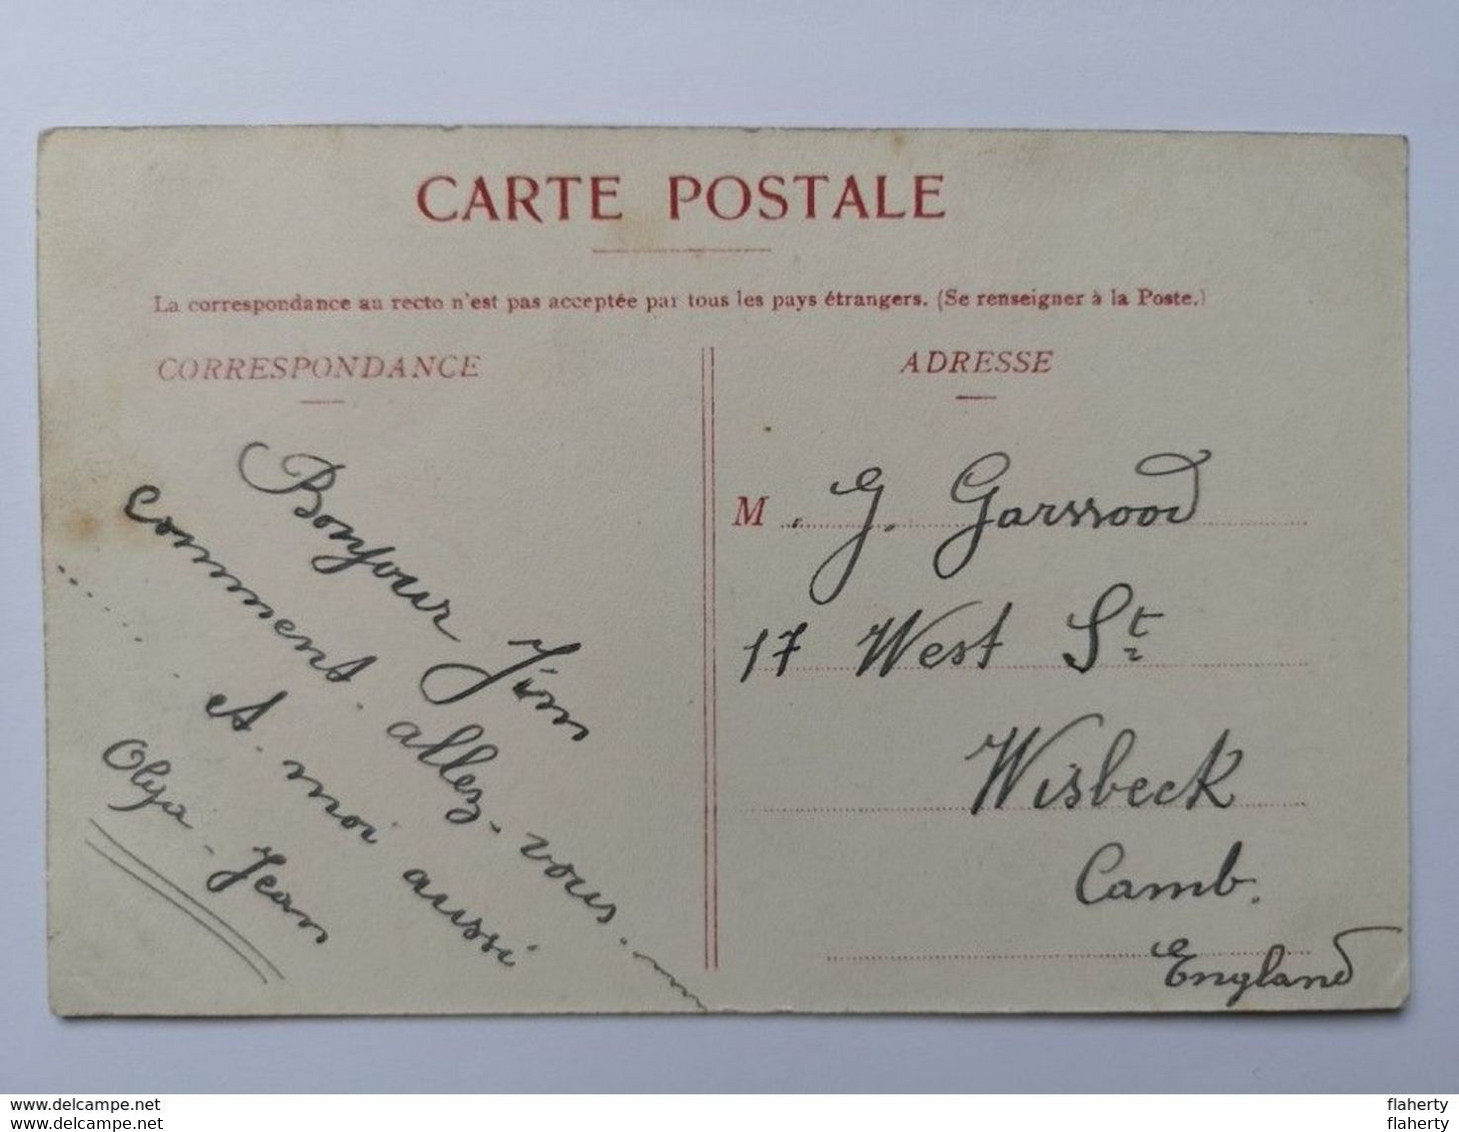 CARTE POSTALE
La correspondance au recto n'est pas acceptée par tous les pays étrangers. (Se renseigner à la Poste.)
CORRESPONDANCE
Bonjour Jim
comment. allez-vous.
..... et. moi aussi
Olga - Jean
ADRESSE
M. G. Garrood
17 West St.
Wisbeck
Camb.
England
www.delcampe.net
www.delcampe.net
flaherty
flaherty